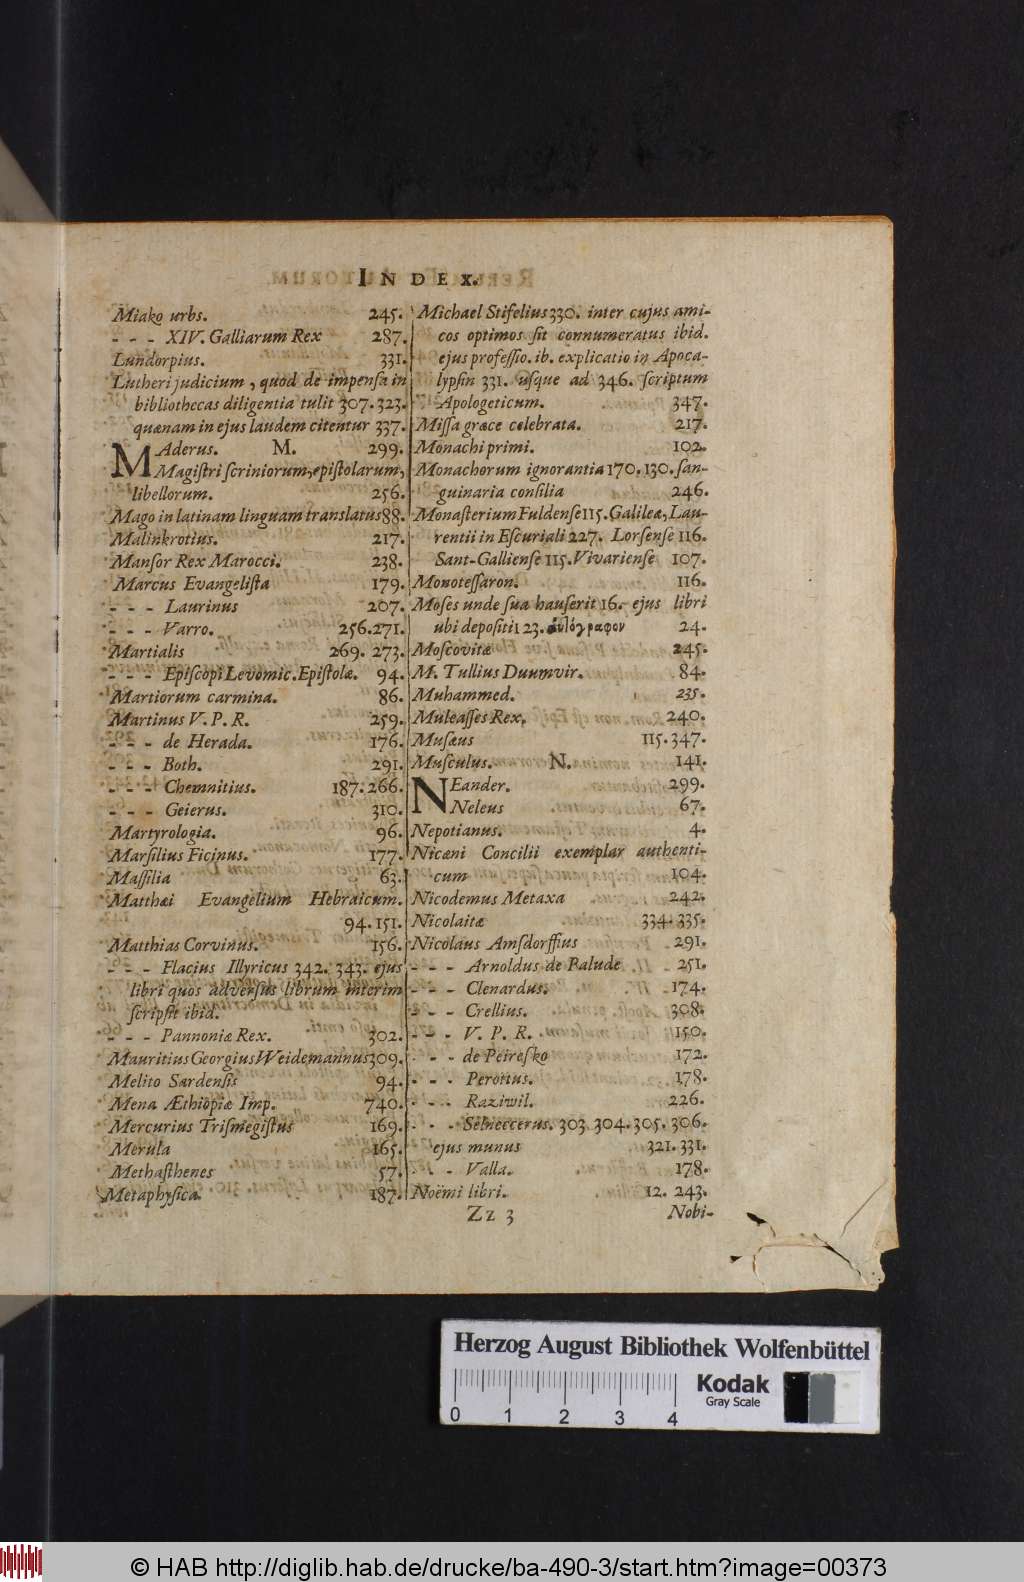 INDEX.
Miako urbs. 245.
- - - XIV. Galliarum Rex 287.
Lundorpius. 331.
Lutheri judicium, quod de impensa in
bibliothecas diligentia tulit 307. 323.
quænam in ejus laudem citentur 337.
M.
MAderus. 299.
Magistri scriniorum, epistolarum,
libellorum. 256.
Mago in latinam linguam translatus 88.
Malinkrotius. 217.
Mansor Rex Marocci. 238.
Marcus Evangelista 179.
- - - Laurinus 207.
- - - Varro. 256. 271.
Martialis 269. 273.
- - - Episcopi Levomic. Epistolæ. 94.
Martiorum carmina. 86.
Martinus V. P. R. 259.
- - - de Herada. 176.
- - - Both. 291.
- - - Chemnitius. 187. 266.
- - - Geierus. 310.
Martyrologia. 96.
Marsilius Ficinus. 177.
Massilia 63.
Matthæi Evangelium Hebraicum.
94. 151.
Matthias Corvinus. 156.
- - - Flacius Illyricus 342. 343. ejus
libri quos adversus librum interim
scripsit ibid.
- - - Pannoniæ Rex. 302.
Mauritius Georgius Weidemannus 309.
Melito Sardensis 94.
Mena Æthiopiæ Imp. 740.
Mercurius Trismegistus 169.
Merula 165.
Methasthenes 57.
Metaphysica. 187.
Michael Stifelius 330. inter cujus ami-
cos optimos sit connumeratus ibid.
ejus professio. ib. explicatio in Apoca-
lypsin 331. usque ad 346. scriptum
Apologeticum. 347.
Missa græce celebrata. 217.
Monachi primi. 102.
Monachorum ignorantia 170. 130. san-
guinaria consilia 246.
Monasterium Fuldense 115. Galileæ, Lau-
rentii in Escuriali 227. Lorsense 116.
Sant-Galliense 115. Vivariense 107.
Monotessaron. 116.
Moses unde sua hauserit 16. ejus libri
ubi depositi 123. ἀυτόγραφον 24.
Moscovitæ 245.
M. Tullius Duumvir. 84.
Muhammed. 235.
Muleasses Rex. 240.
Musæus 115. 347.
Musculus. 141.
N.
NEander. 299.
Neleus 67.
Nepotianus. 4.
Nicæni Concilii exemplar authenti-
cum 104.
Nicodemus Metaxa 242.
Nicolaitæ 334. 335.
Nicolaus Amsdorffius 291.
- - - Arnoldus de Palude 251.
- - - Clenardus. 174.
- - - Crellius. 308.
- - - V. P. R. 150.
- - - de Peiresko 172.
- - - Perottus. 178.
- - - Raziwil. 226.
- - - Selneccerus. 303. 304. 305. 306.
ejus munus 321. 331.
- - - Valla. 178.
Noëmi libri. 12. 243.
Zz 3 Nobi-
Herzog August Bibliothek Wolfenbüttel
0 1 2 3 4
Kodak
Gray Scale
© HAB http://diglib.hab.de/drucke/ba-490-3/start.htm?image=00373